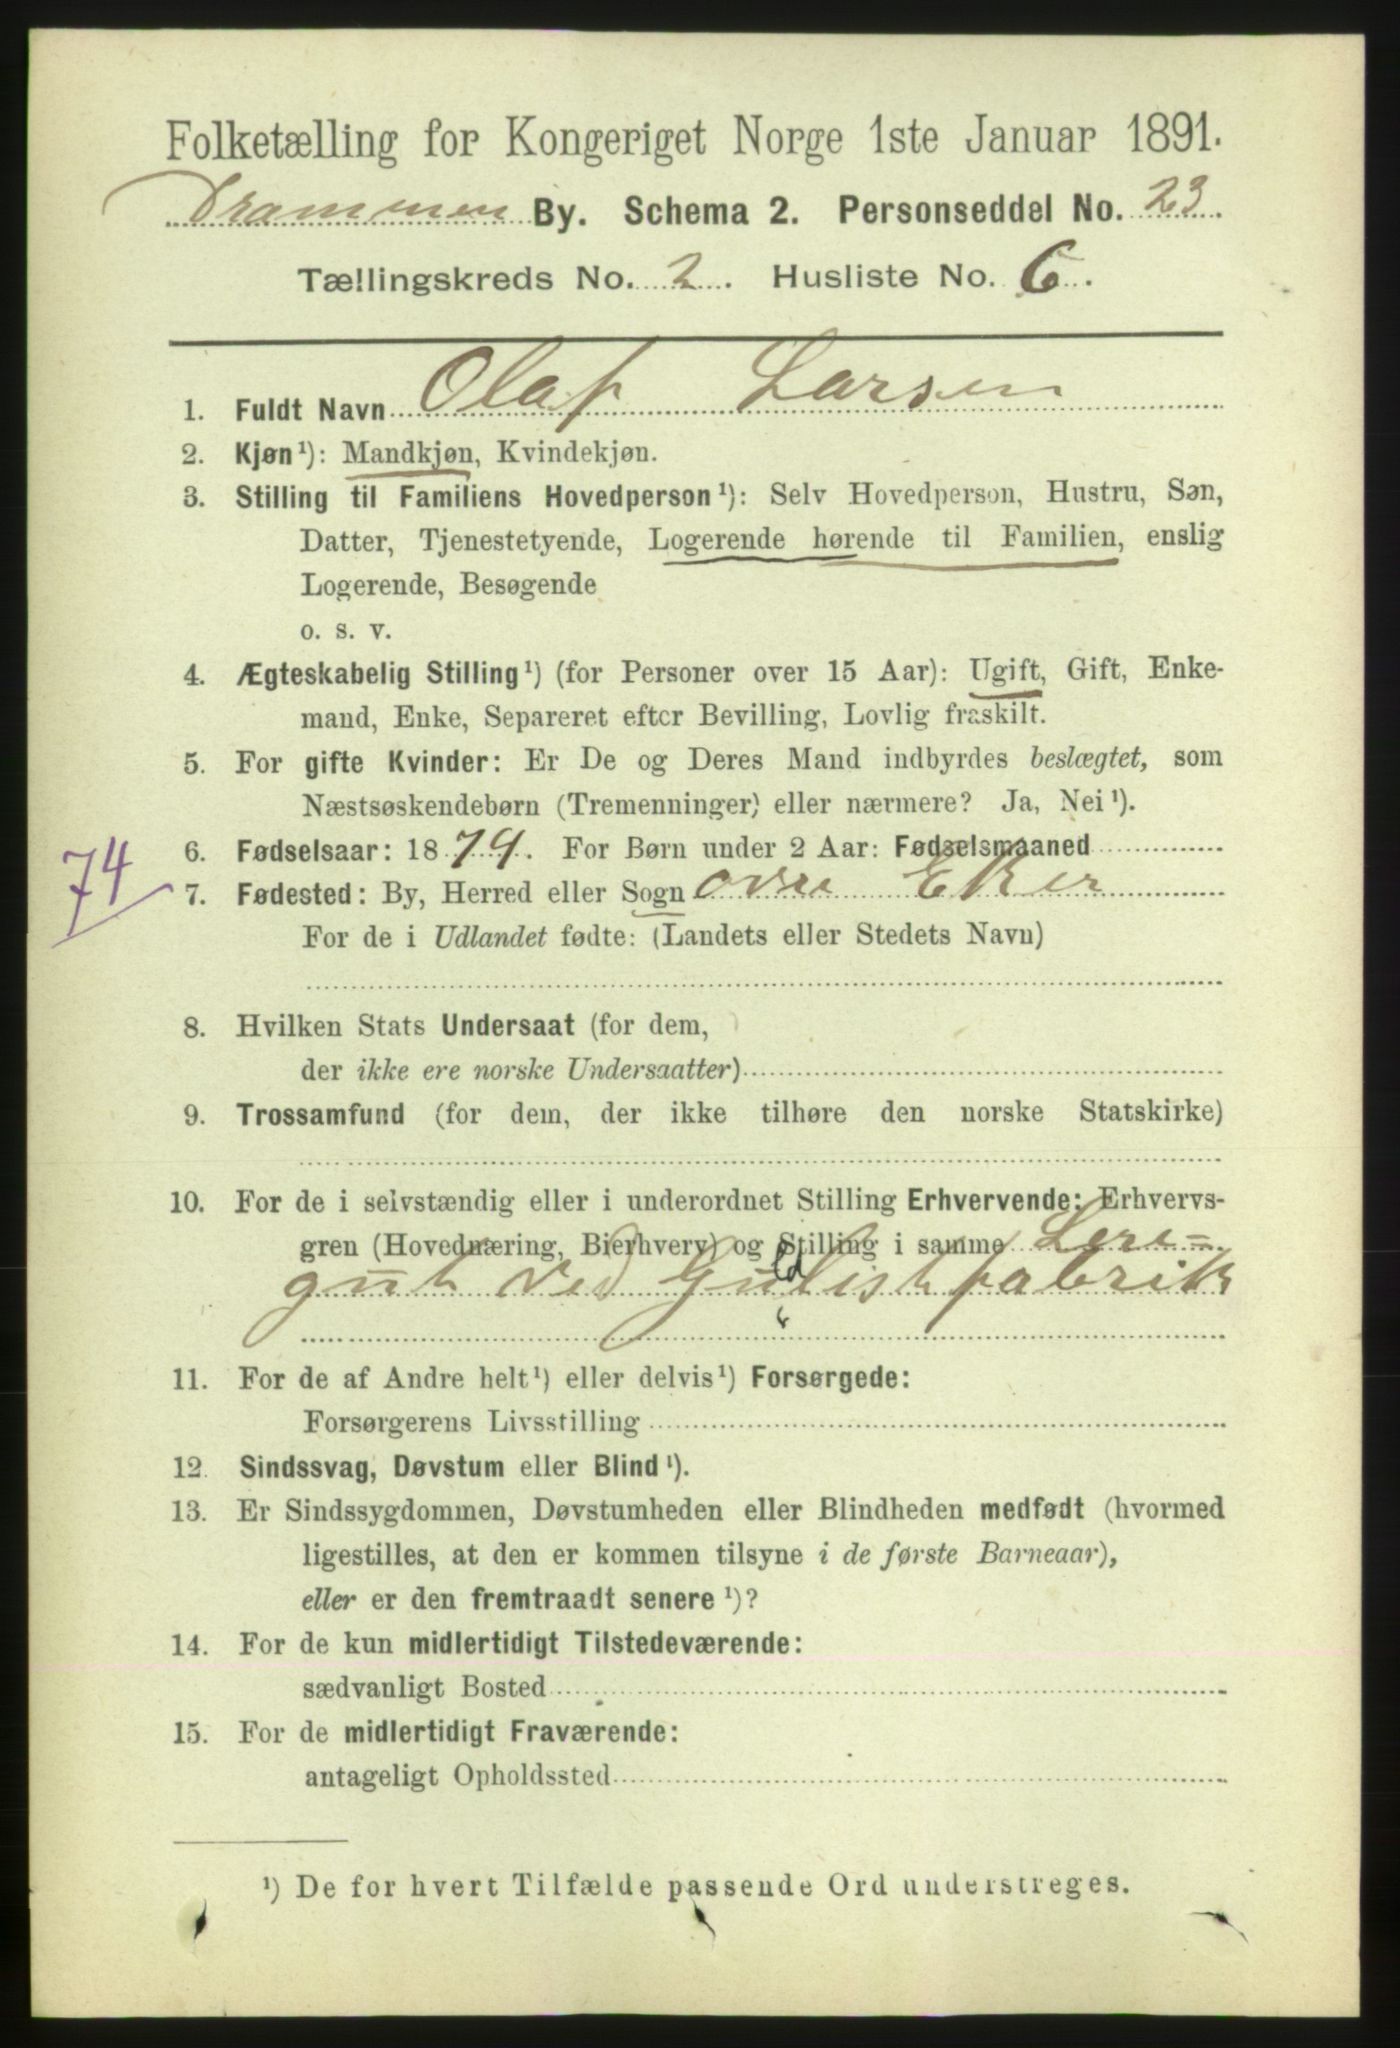 Folketælling for Kongeriget Norge 1ste Januar 1891.
Drammen By. Schema 2. Personseddel No. 23.
Tællingskreds No. 2. Husliste No. 6.
1. Fuldt Navn Olaf Larsen
2. Kjøn¹): Mandkjøn, Kvindekjøn.
3. Stilling til Familiens Hovedperson¹): Selv Hovedperson, Hustru, Søn,
Datter, Tjenestetyende, Logerende hørende til Familien, enslig
Logerende, Besøgende
o. s. v.
4. Ægteskabelig Stilling¹) (for Personer over 15 Aar): Ugift, Gift, Enke-
mand, Enke, Separeret efter Bevilling, Lovlig fraskilt.
5. For gifte Kvinder: Er De og Deres Mand indbyrdes beslægtet, som
Næstsøskendebørn (Tremenninger) eller nærmere? Ja, Nei¹).
6. Fødselsaar: 1874. For Børn under 2 Aar: Fødselsmaaned
74
7. Fødested: By, Herred eller Sogn ovre Eker
For de i Udlandet fødte: (Landets eller Stedets Navn)
8. Hvilken Stats Undersaat (for dem,
der ikke ere norske Undersaatter)
9. Trossamfund (for dem, der ikke tilhøre den norske Statskirke)
10. For de i selvstændig eller i underordnet Stilling Erhvervende: Erhvervs-
gren (Hovednæring, Bierhverv) og Stilling i samme Lere=
gut ved Guldlistfabrik
11. For de af Andre helt¹) eller delvis¹) Forsørgede:
Forsørgerens Livsstilling
12. Sindssvag, Døvstum eller Blind¹).
13. Er Sindssygdommen, Døvstumheden eller Blindheden medfødt (hvormed
ligestilles, at den er kommen tilsyne i de første Barneaar),
eller er den fremtraadt senere¹)?
14. For de kun midlertidigt Tilstedeværende:
sædvanligt Bosted
15. For de midlertidigt Fraværende:
antageligt Opholdssted
¹) De for hvert Tilfælde passende Ord understreges.